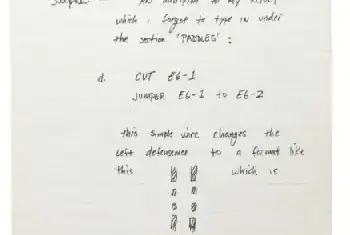 AN addition to my REPORT
which i forgot to type in under
the section 'PADDLES' :
d. CUT E6-1
JUMPER E6-1 to E6-2
this simple wire changes the
left defenseman to a format like
this which is